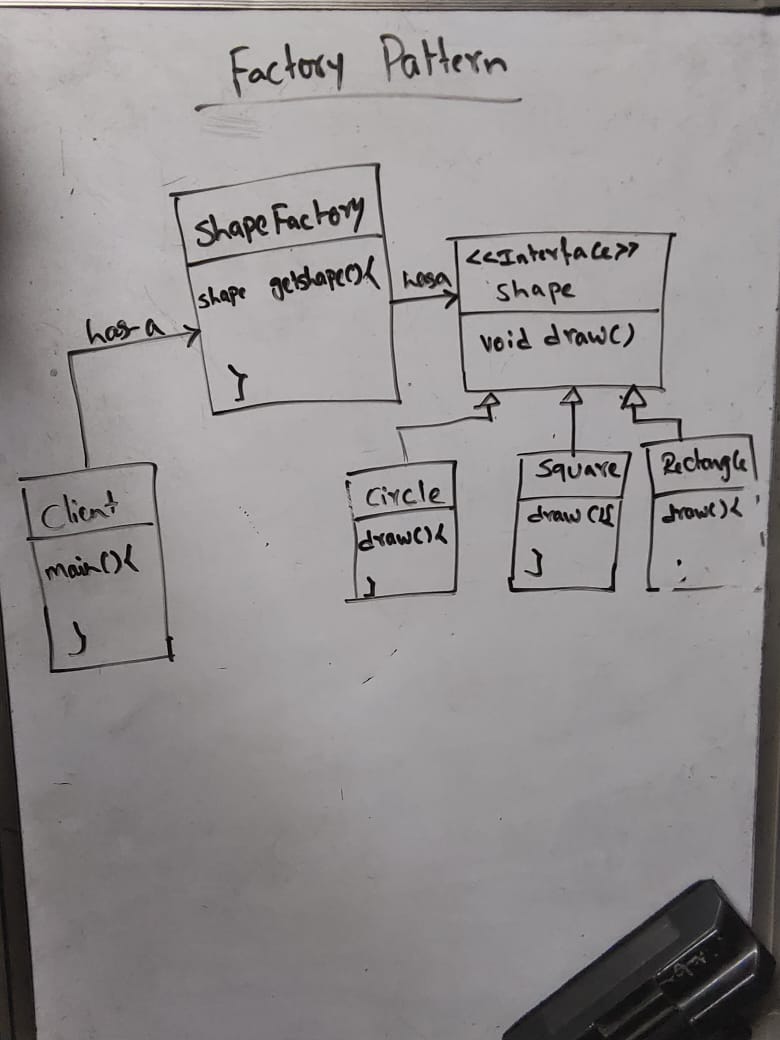 Factory Pattern
ShapeFactory
shape getshape(){
}
has-a
has a
<<Interface>>
shape
void draw()
Client
main(){
}
Circle
draw(){
}
Square
draw(){
}
Rectangle
draw(){